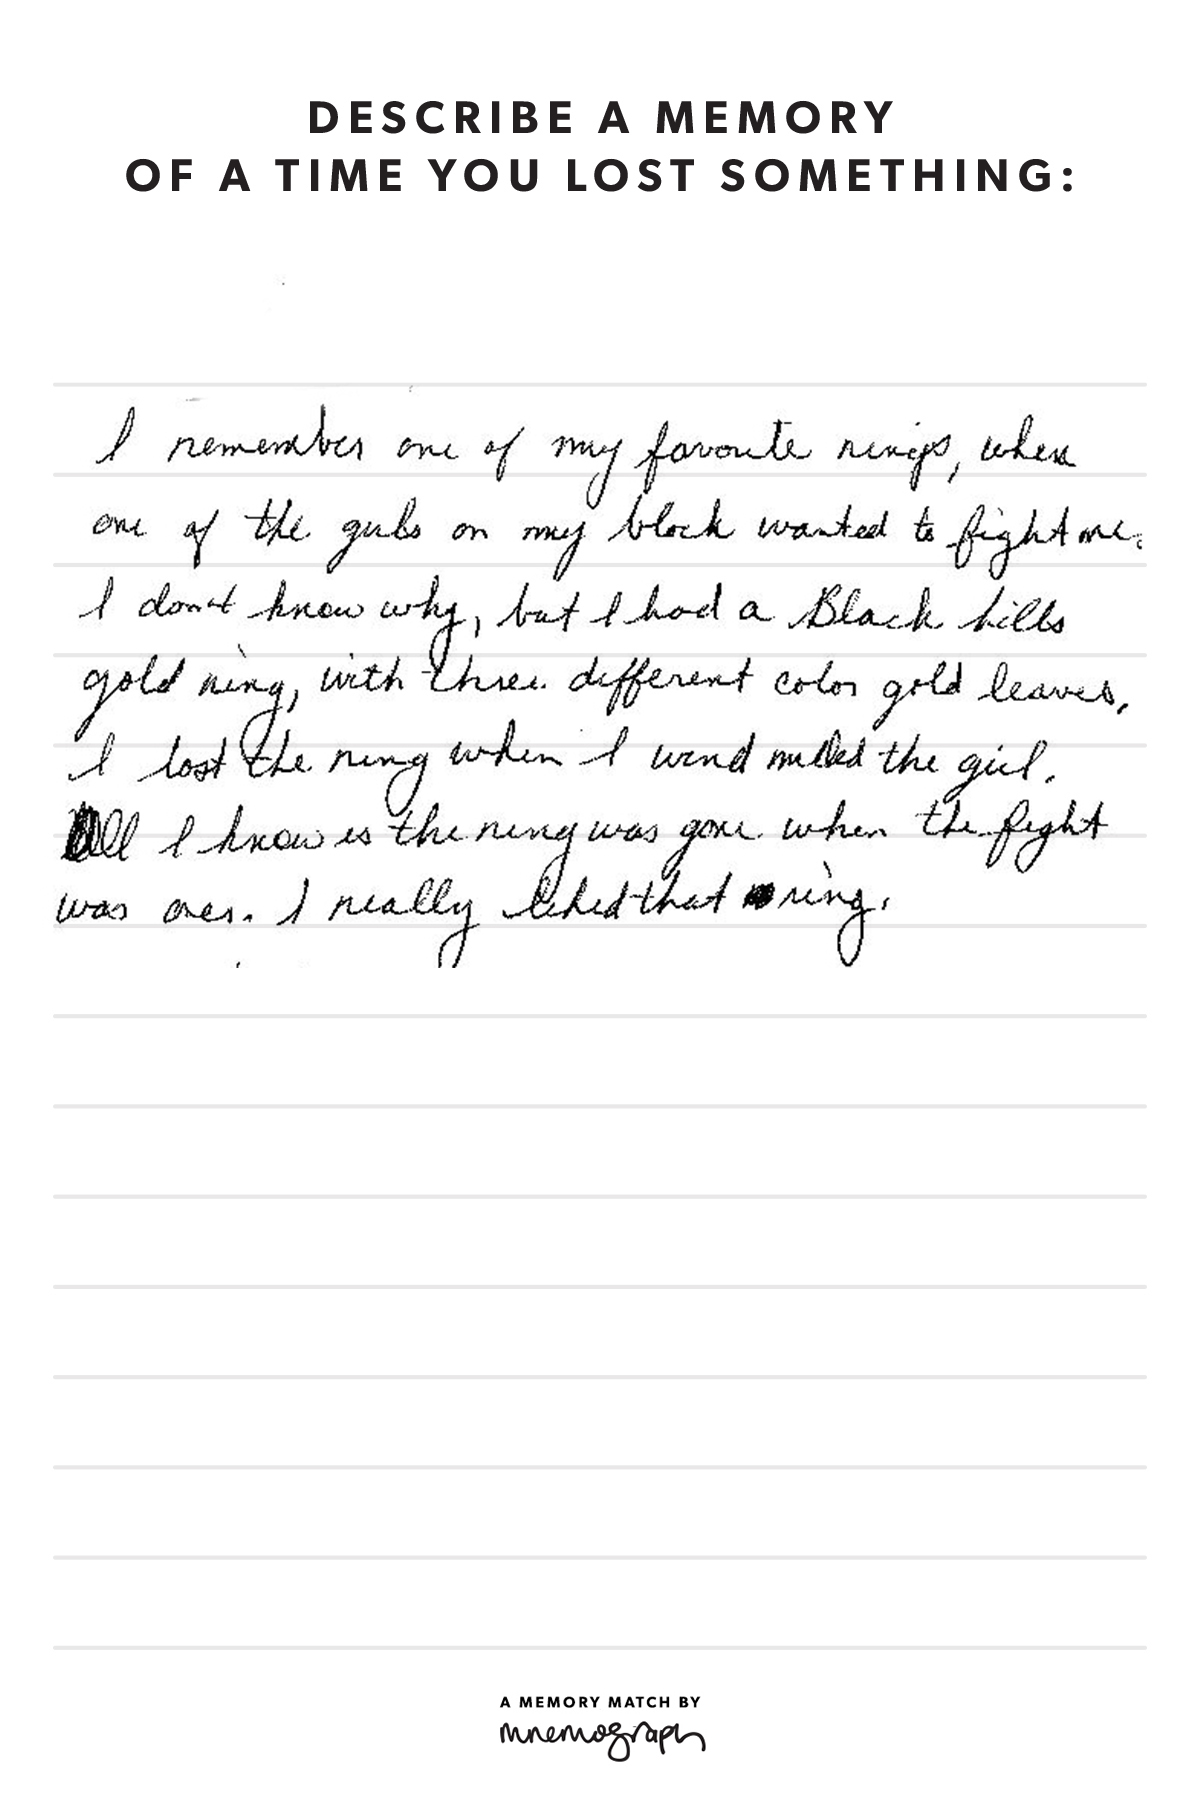 DESCRIBE A MEMORY
OF A TIME YOU LOST SOMETHING:
I remember one of my favorite rings, when
one of the girls on my block wanted to fight me.
I don't know why, but I had a Black hills
gold ring, with three different color gold leaves,
I lost the ring when I wind milled the girl.
All I know is the ring was gone when the fight
was over. I really liked that ring.
A MEMORY MATCH BY
mnemograph